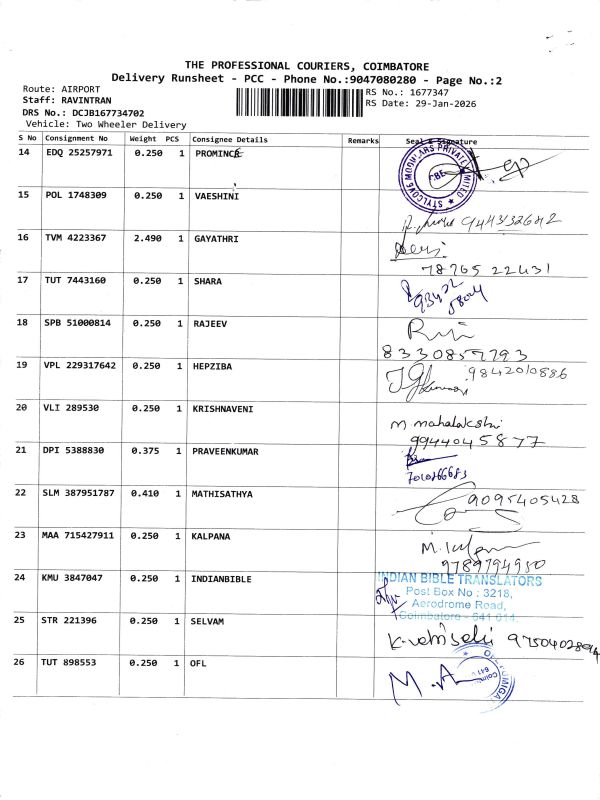 THE PROFESSIONAL COURIERS, COIMBATORE
Delivery Runsheet - PCC - Phone No.:9047080280 - Page No.:2
Route: AIRPORT
Staff: RAVINTRAN
DRS No.: DCJB167734702
Vehicle: Two Wheeler Delivery
RS No.: 1677347
RS Date: 29-Jan-2026
S No Consignment No Weight PCS Consignee Details Remarks Seal & Signature
14 EDQ 25257971 0.250 1 PROMINCE
STYLCOVE MODULARS PRIVATE LIMITED CBE
15 POL 1748309 0.250 1 VAESHINI
9443132642
16 TVM 4223367 2.490 1 GAYATHRI
78765 22431
17 TUT 7443160 0.250 1 SHARA
93452
58004
18 SPB 51000814 0.250 1 RAJEEV
8330857793
19 VPL 229317642 0.250 1 HEPZIBA
9842010886
20 VLI 289530 0.250 1 KRISHNAVENI
M mahalakshi
9944045877
21 DPI 5388830 0.375 1 PRAVEENKUMAR
7010866683
22 SLM 387951787 0.410 1 MATHISATHYA
9095405428
23 MAA 715427911 0.250 1 KALPANA
9789794950
24 KMU 3847047 0.250 1 INDIANBIBLE
INDIAN BIBLE TRANSLATORS
Post Box No : 3218,
Aerodrome Road,
Coimbatore - 641 014.
25 STR 221396 0.250 1 SELVAM
26 TUT 898553 0.250 1 OFL
M.A